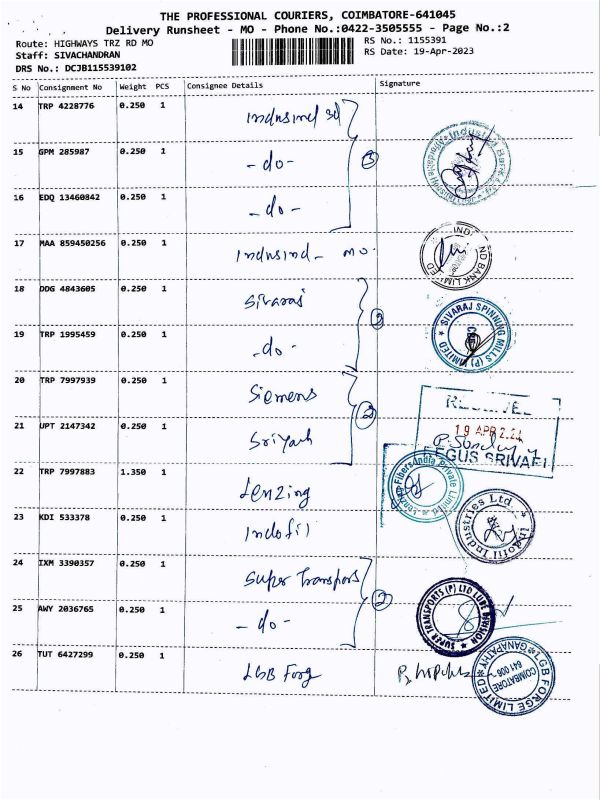 THE PROFESSIONAL COURIERS, COIMBATORE-641045
Delivery Runsheet - MO - Phone No.:0422-3505555 - Page No.:2
Route: HIGHWAYS TRZ RD MO
RS No.: 1155391
Staff: SIVACHANDRAN
RS Date: 19-Apr-2023
DRS No.: DCJB115539102
S No Consignment No Weight PCS Consignee Details Signature
14 TRP 4228776 0.250 1 Indusind
15 GPM 285987 0.250 1 -do- 3
16 EDQ 13460842 0.250 1 -do-
17 MAA 859450256 0.250 1 Indusind - MO.
18 DDG 4843605 0.250 1 Sivaraj
2
19 TRP 1995459 0.250 1 -do-
SIVARAJ SPINNING MILLS (P) LIMITED
20 TRP 7997939 0.250 1 Siemens
2
21 UPT 2147342 0.250 1
19 APR
22 TRP 7997883 1.350 1 Lenzing
Lenzing Fibers India Private Limited
23 KDI 533378 0.250 1 Indofil
Indofil Industries Ltd.
24 IXM 3390357 0.250 1 Super Transpors
2
25 AWY 2036765 0.250 1 -do-
SUPER TRANSPORTS (P) LTD LUBE DIVISION
26 TUT 6427299 0.250 1 LGB Forg
LGB FORGE LIMITED
GANAPATHY
COIMBATORE
641 006